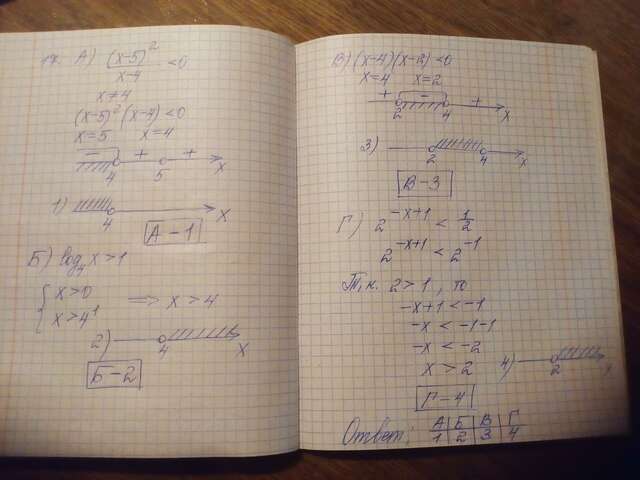 17. А) (x-5)²/(x-4) <0
x≠4
(x-5)²(x-4)<0
x=5 x=4
- + +
4 5 x
1) 4 x
А-1
Б) log₄x>1
{ x>0
x>4¹ => x>4
2) 4 x
Б-2
В) (x-4)(x-2)<0
x=4 x=2
+ - +
2 4 x
3) 2 4 x
В-3
Г) 2^(-x+1) < 1/2
2^(-x+1) < 2^(-1)
Т.к. 2>1, то
-x+1<-1
-x<-1-1
-x<-2
x>2
4) 2 x
Г-4
Ответ: А Б В Г
1 2 3 4